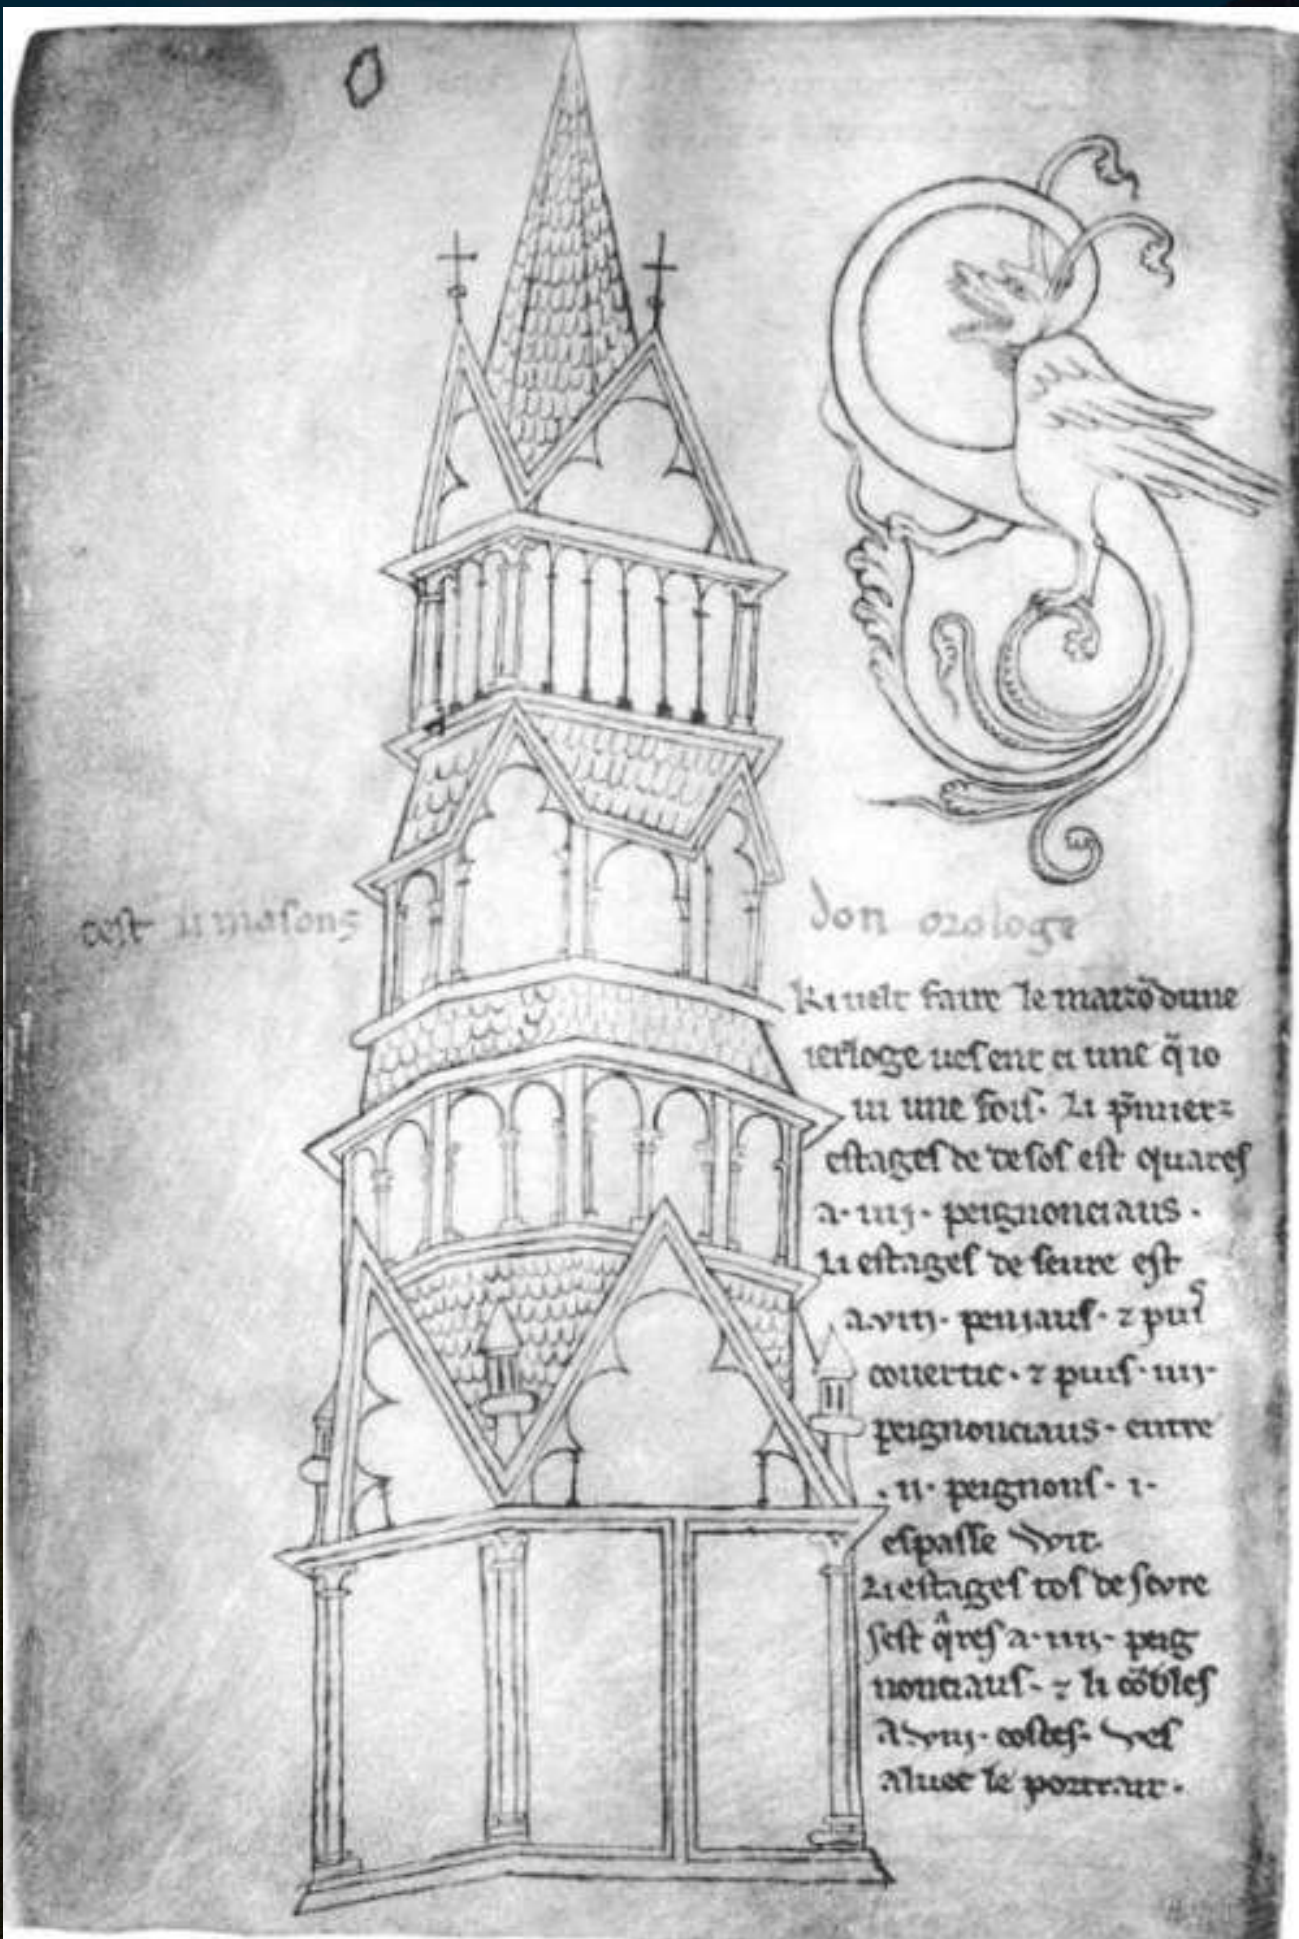 cest li masons don orologe
Ki velt faire le maizō dune
ierloge ves ent ci une q̄ io
vi une fois. Li p̄miers
estages de desos est quares
a. iiij. peignonciaus.
Li estages de seure est
a. viij. peniaus. ⁊ puis
covertic. ⁊ puis. iiij.
peignonciaus. entre
. ii. peignons. i.
espasse vvit.
Li estages tos de sevre
sest q̄res a. iiij. peig
nonciaus. ⁊ li cōbles
a. viij. costes. ves
aluec le portrait.